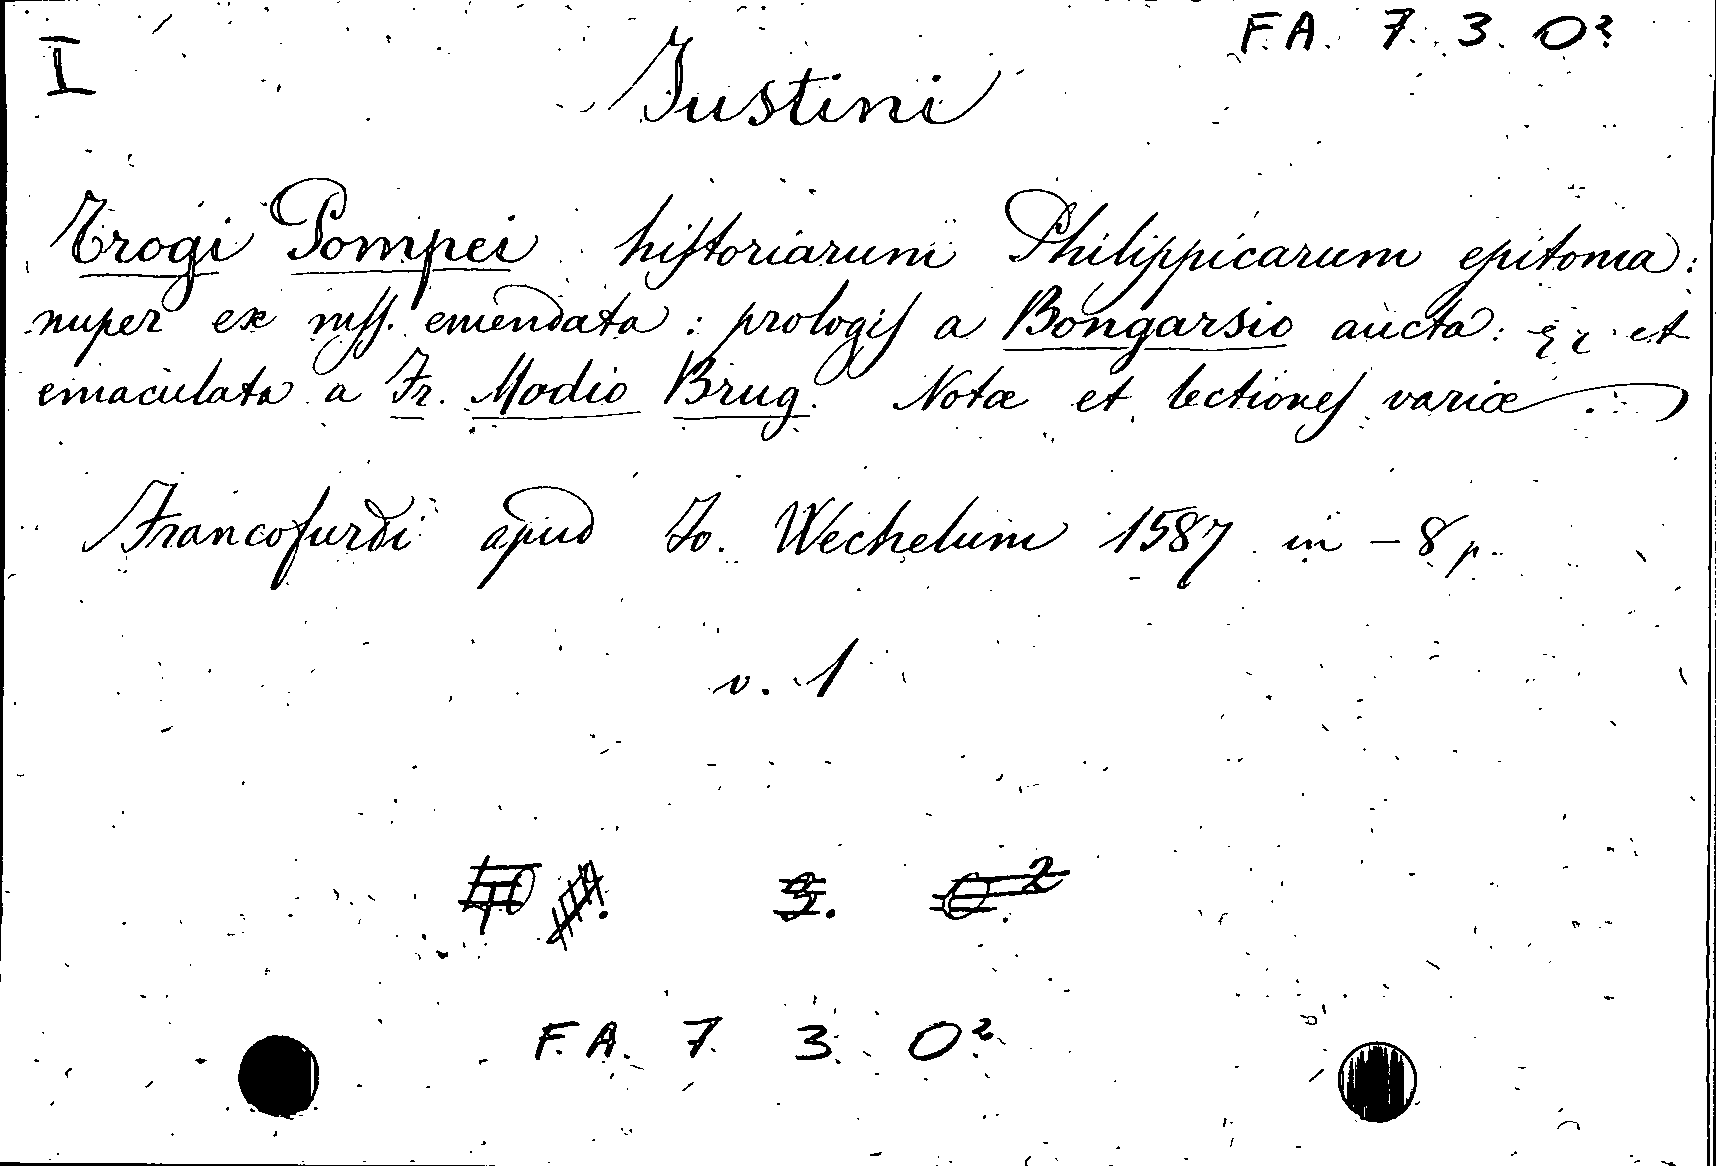 F. A. 7. 3. O²
I
Justini
Trogi Pompei historiarum Philippicarum epitoma:
nuper ex mſſ. emendata: prologiſ a Bongarsio aucta: et
emaculata a Fr. Modio Brug. Notæ et lectioneſ variæ
Francofurdi apud Jo. Wechelum 1587 in - 8 p.
v. 1
3. O²
F. A. 7 3. O²